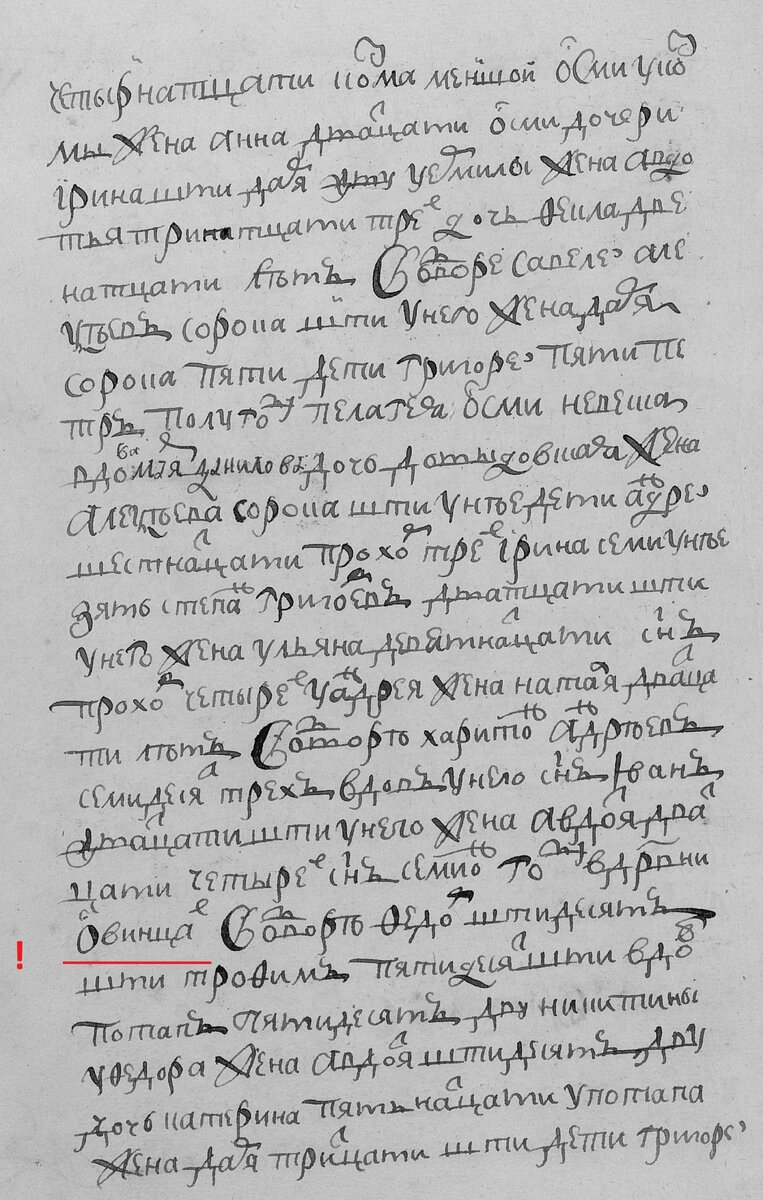 четырнатцати кома меншой осми у ко
мы жена анна дватцати осми дочери
iрина шти даря у ермилы жена авдо
тья тринатцати трех дочь феила две
натцати лѣтъ Во дворе савеле але
сорока шти у него жена даря
сорока пяти дети григореи пяти пе
тръ полуто пелагея осми невеска
вдовая данилова дочь жена
сорока шти у нѣе дети аньдре
шеснатцати прохор трех iрина семи у нѣе
зять степан григоревъ дватцати шти
у него жена ульяна девятнатцати снъ
прохор четырех у андрея жена наталя дватца
ти лѣтъ Во дворѣ харитон андрѣевъ
семидесят трехъ вдовъ у него снъ iванъ
дватцати шти у него жена авдотя дват
цати четырех снъ семион году в дрвни
овинцах Во дворѣ федор штидесятъ
шти трофимъ пятидесят шти вдов
потапъ пятидесятъ дву никитины
у федора жена авдотя штидесятъ дву
дочь катерина пятьнатцати у потапа
жена даря тритцати шти дети григоре